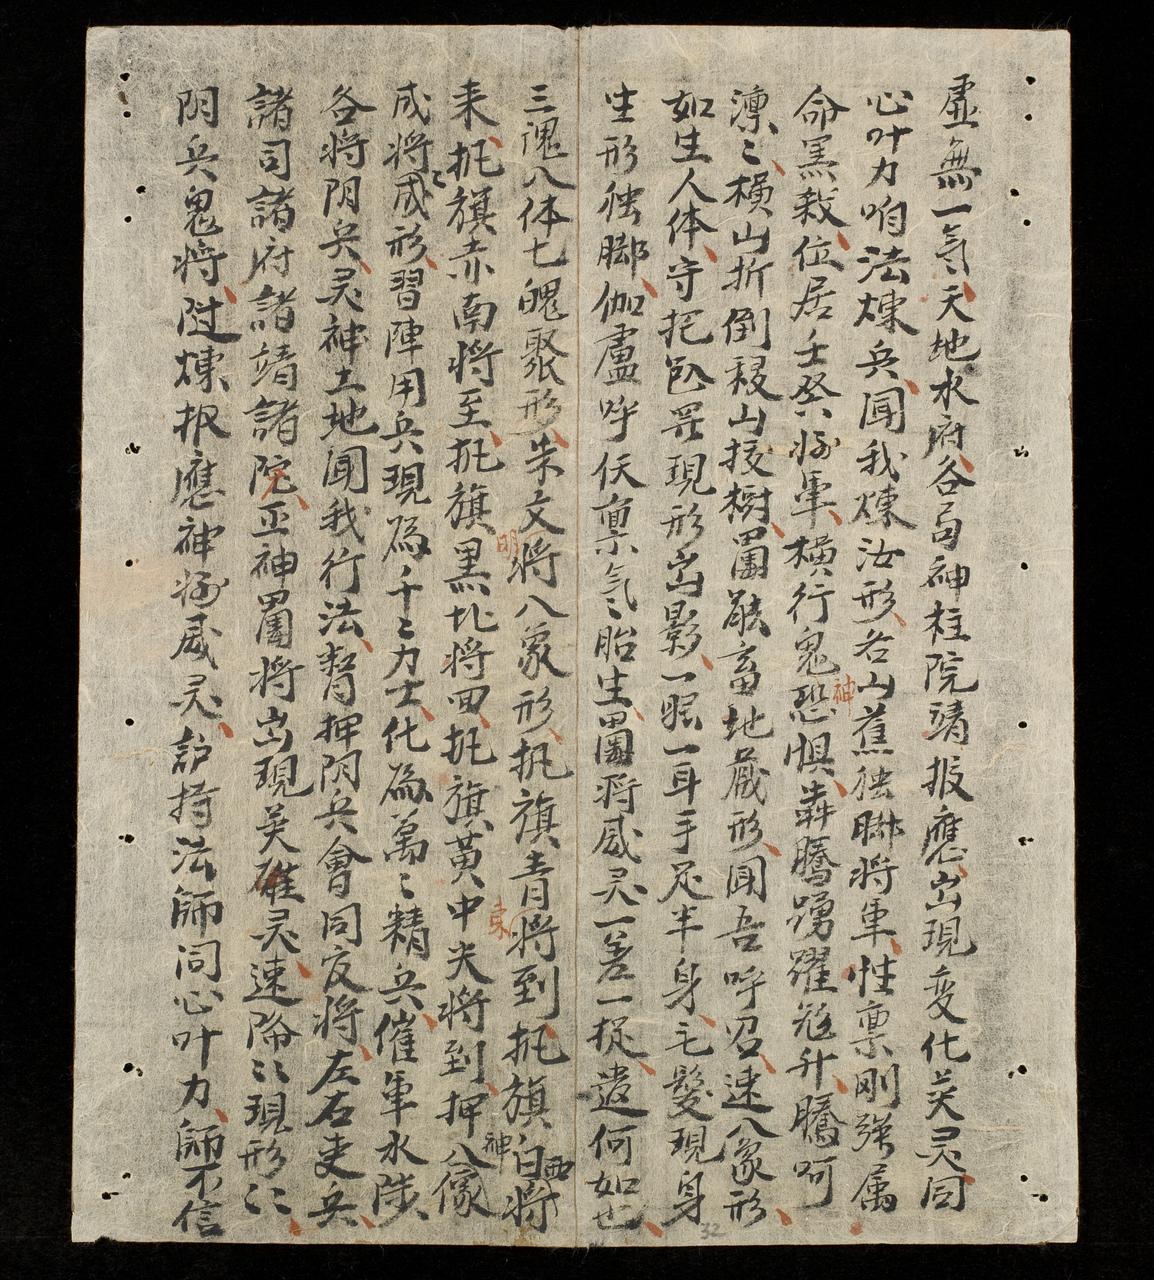 虛無一氣天地水府各司神柱院靖报應出現变化英灵同
心叶力咱法煉兵闻我煉汝形名山蕉独脚将軍性禀刚强属
命黑杀位居壬癸将軍横行鬼神恐惧犇騰踴躍冠升騰呵
凛〻横山折倒移山拔樹罡能畜地藏形闻吾呼召速入象形
如生人体守把現形出影一眼一耳手足半身毛髮現身
生形独脚伽盧呼伏禀氣胎生罡将威灵一差一捉遣何如也
三魂八体七魄聚形朱文明将八象形执旗青東将到执旗白西将
来执旗赤南将至执旗黑北将回执旗黄中央将到押入神像
成将〻成形習陣用兵現為千〻力士化為萬〻精兵催軍水陟
各将阴兵灵神土地闻我行法暂押阴兵會同友将左右吏兵
諸司諸府諸靖諸院正神罡将出現英雄灵速降〻現形〻
阴兵鬼将陞煉报應神将威灵護持法師同心叶力師不信